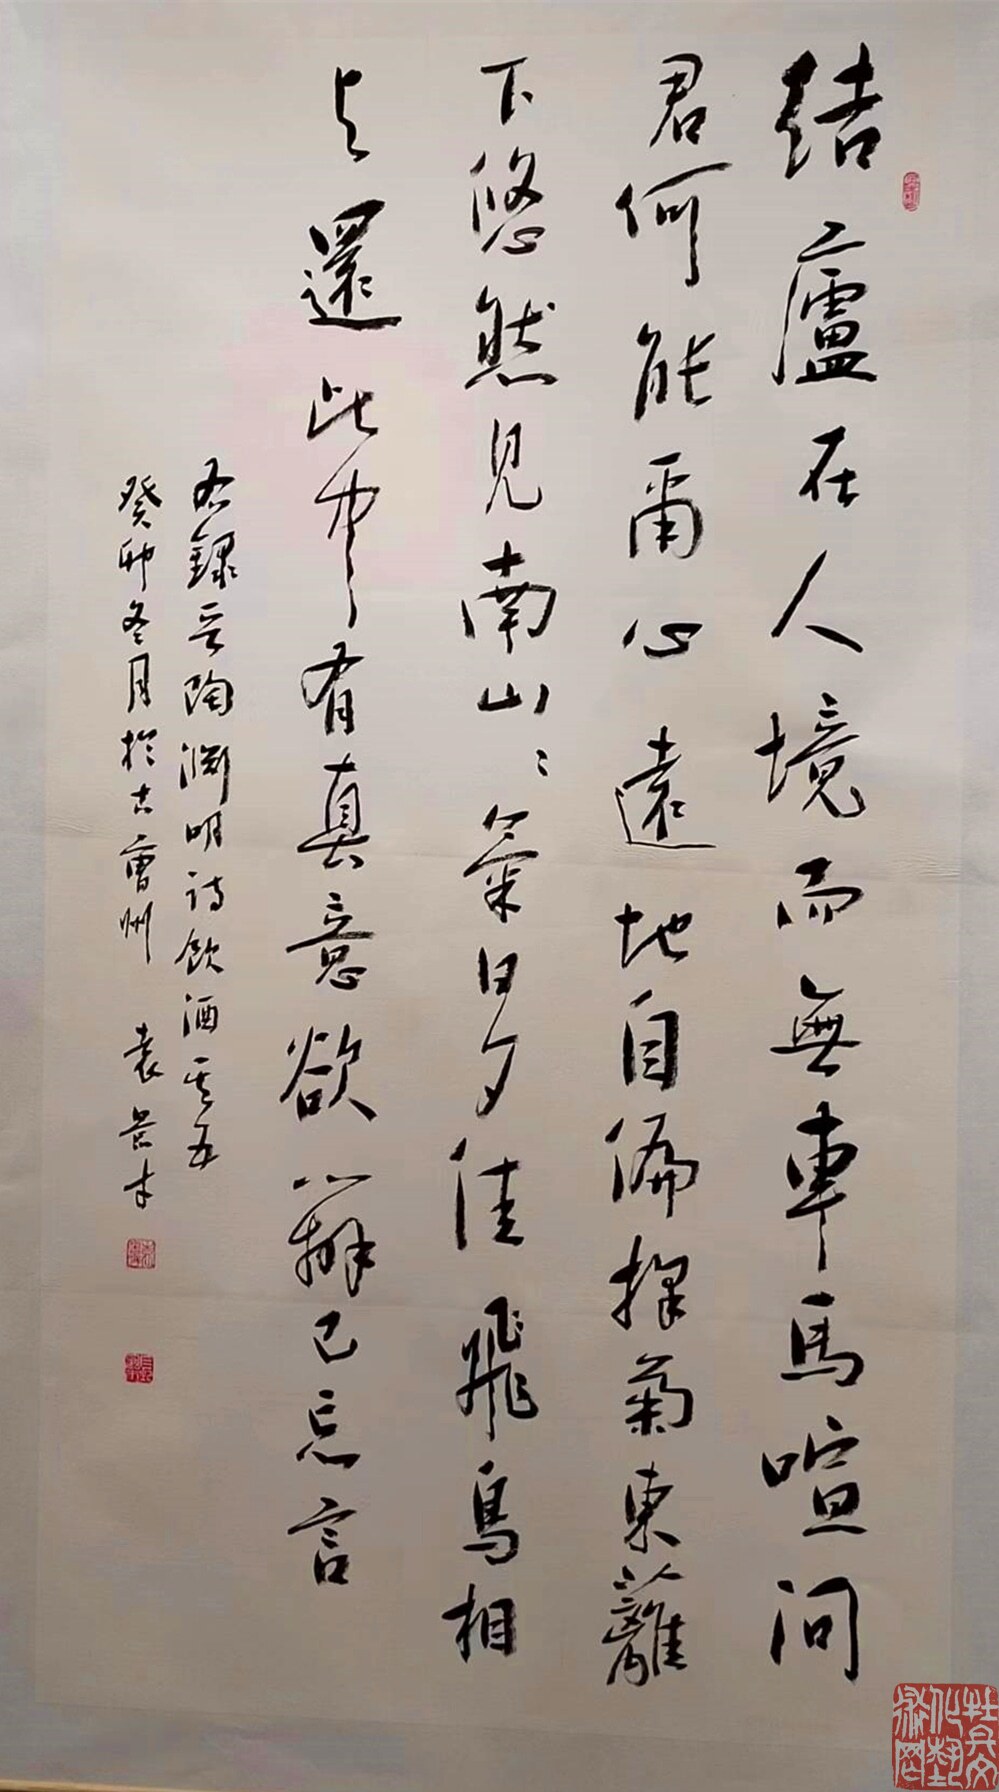 結廬在人境而無車馬喧問
君何能爾心遠地自偏採菊東籬
下悠然見南山山氣日夕佳飛鳥相
與還此中有真意欲辨已忘言
右錄晉陶淵明詩飲酒其五
癸卯冬月於古曹州 袁